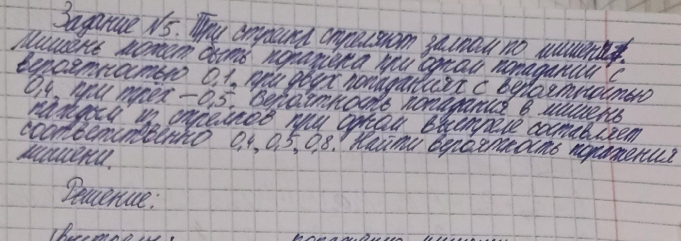 Задание №5. Три стрелка стреляют залпом по мишени.
Мишень может быть поражена при одном попадании с
вероятностью 0,1, при двух попаданиях с вероятностью
0,4, при трех - 0,5. Вероятность попадания в мишень
каждым из стрелков при одном выстреле составляет
соответственно 0,4, 0,5, 0,8. Найти вероятность поражения
мишени.
Решение: